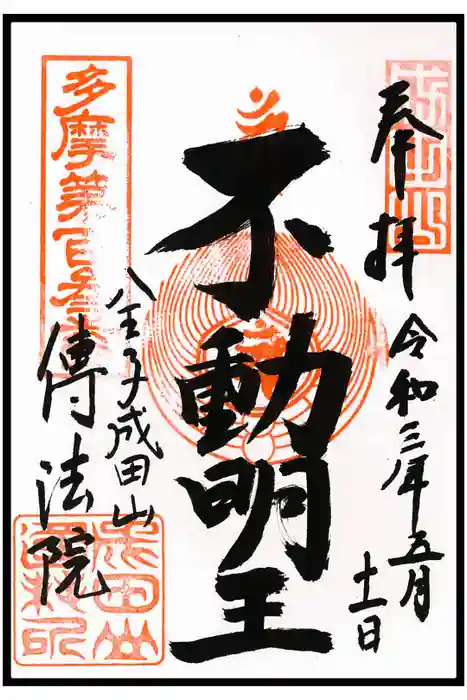 奉拝
令和三年五月
十一日
不動明王
八王子成田山
傳法院
多摩第百
成田山
成田山